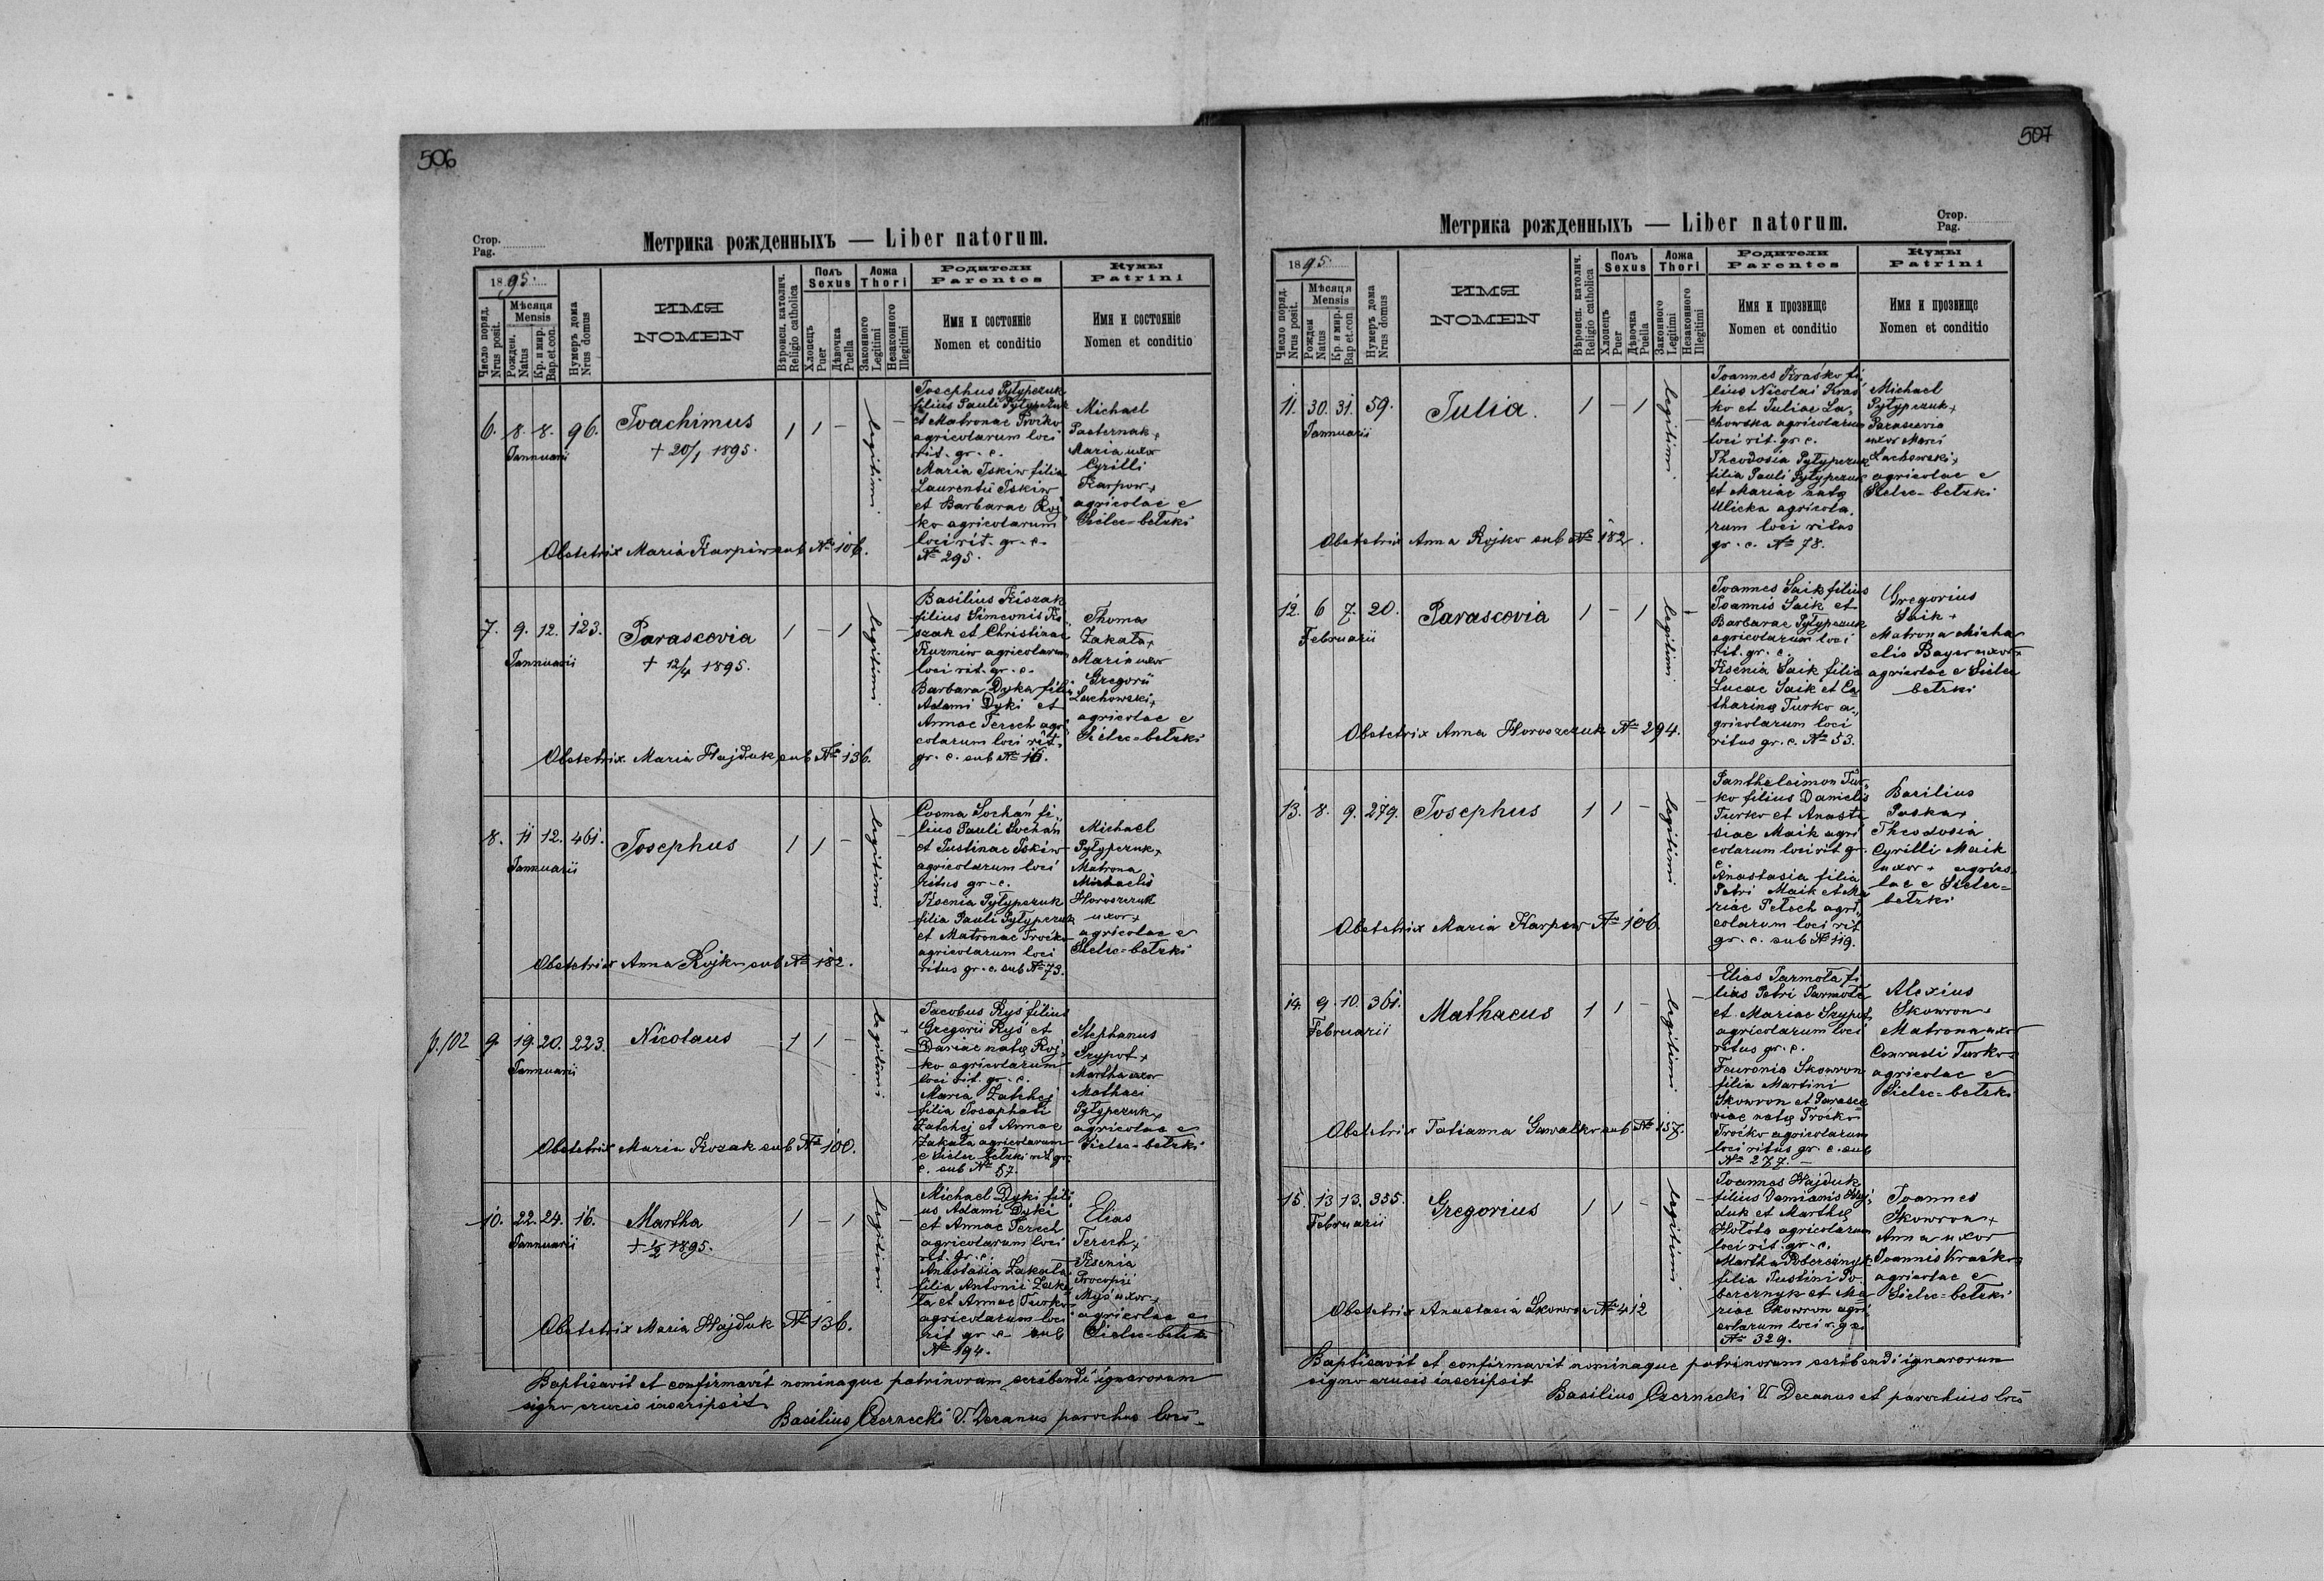 506
Стор.
Pag.
Метрика рожденныхъ — Liber natorum.
1895.
Число поряд.
Nrus posit.
Мѣсяця
Mensis
Рожден.
Natus
Кр. и мир.
Bap.et.con.
Нумеръ дома
Nrus domus
ИМЯ
NOMEN
Вѣроисп. католич.
Religio catholica
Полъ
Sexus
Хлопецъ
Puer
Дѣвочка
Puella
Ложа
Thori
Законного
Legitimi
Незаконного
Illegitimi
Родители
Parentes
Имя и состояніе
Nomen et conditio
Кумы
Patrini
Имя и состояніе
Nomen et conditio
6. 8. 8. 96.
Januarii
Joachimus
+ 20/1 1895.
1 1 –
legitimi
–
Josephus Pyłypczuk
filius Pauli Pyłypczuk
et Matronae Troćko
agricolarum loci
rit. gr. c.
Maria Iskiw filia
Laurentii Iskiw
et Barbarae Roj
ko agricolarum
loci rit. gr. c.
№ 295.
Michael
Pasternak +
Maria uxor
Cyrilli
Karpow +
agricolae e
Sielec-bełzki
Obstetrix Maria Karpiw sub № 106.
7. 9. 12. 123.
Januarii
Parascovia
+ 12/4 1895.
1 – 1
legitimi
–
Basilius Kiszak
filius Simeonis Ki
szak et Christinae
Kuzmiw agricolarum
loci rit. gr. c.
Barbara Dyka filia
Adami Dyki et
Annae Terech agri
colarum loci rit.
gr. c. sub № 16.
Thomas
Zakała +
Maria uxor
Gregorii
Lachowski +
agricolae e
Sielec-bełzki
Obstetrix Maria Hajduk sub № 136.
8. 11 12. 461.
Januarii
Josephus
1 1 –
legitimi
–
Cosma Sochań fi
lius Pauli Sochań
et Justinae Iskiw
agricolarum loci
ritus gr. c.
Ksenia Pyłypczuk
filia Pauli Pyłypczuk
et Matronae Troćko
agricolarum loci
ritus gr. c. sub № 73.
Michael
Pyłypczuk +
Matrona
Michaelis
Horoszczuk
uxor +
agricolae e
Sielec-bełzki
Obstetrix Anna Rojko sub № 182.
p. 102
9 19. 20. 223.
Januarii
Nicolaus
1 1 –
legitimi
Jacobus Ryś filius
Gregorii Ryś et
Dariae natę Roj
ko agricolarum
loci rit. gr. c.
Maria Zatchej
filia Josaphati
Zatchej et Annae
Zakała agricolarum
e Sielec bełzki rit gr.
c. sub № 57.
Stephanus
Szypot +
Martha uxor
Mathaei
Pyłypczuk +
agricolae e
Sielec-bełzki
Obstetrix Maria Kozak sub № 100.
10. 22. 24. 16.
Januarii
Martha
+ 1/2 1895.
1 – 1
legitimi
–
Michael Dyki fili
us Adami Dyki
et Annae Terech
agricolarum loci
rit. gr. c.
Anastasia Zakała
filia Antonii Zaka
ła et Annae Turko
agricolarum loci
rit gr c sub
№ 194.
Elias
Terech +
Ksenia
Procopii
Myś uxor +
agricolae e
Sielec-bełzki
Obstetrix Maria Hajduk № 136.
Baptisavit et confirmavit nominaque patrinorum scribendi ignarorum
signo crucis inscripsit
Basilius Czernecki V. Decanus parochus loci
507
Метрика рожденныхъ — Liber natorum.
Стор.
Pag.
1895.
Число поряд.
Nrus posit.
Мѣсяця
Mensis
Рожден
Natus
Кр. и мир.
Bap.et.con.
Нумеръ дома
Nrus domus
ИМЯ
NOMEN
Вѣроисп. католич.
Religio catholica
Полъ
Sexus
Хлопецъ
Puer
Дѣвочка
Puella
Ложа
Thori
Законного
Legitimi
Незаконного
Illegitimi
Родители
Parentes
Имя и прозвище
Nomen et conditio
Кумы
Patrini
Имя и прозвище
Nomen et conditio
11. 30. 31. 59.
Januarii
Julia.
1 – 1
legitimi
–
Joannes Kraśko fi
lius Nicolai Kraś
ko et Juliae La
chowska agricolarum
loci rit. gr. c.
Theodosia Pyłypczuk
filia Pauli Pyłypczuk
et Mariae natę
Ulicka agricola
rum loci ritus
gr. c. № 78.
Michael
Pyłypczuk +
Parascevia
uxor Marci
Lachowski +
agricolae e
Sielec-bełzki
Obstetrix Anna Rojko sub № 182.
12. 6 7. 20.
Februarii
Parascovia
1 – 1
legitimi
–
Joannes Saik filius
Joannis Saik et
Barbarae Pyłypczuk
agricolarum loci
rit. gr. c.
Ksenia Saik filia
Lucae Saik et Ca
tharinę Turko a
gricolarum loci
ritus gr. c. № 53.
Gregorius
Saik +
Matrona Micha
elis Bayer uxor +
agricolae e Sielec
bełzki
Obstetrix Anna Horoszczuk № 294.
13. 8. 9. 279.
Josephus
1 1 –
legitimi
–
Pantheleimon Tur
ko filius Danielis
Turko et Anasta
siae Maik agri
colarum loci rit gr.
c.
Anastasia filia
Petri Maik et Ma
riae Pełech agri
colarum loci rit
gr. c. sub № 119.
Basilius
Paska +
Theodosia
Cyrilli Maik
uxor + agrico
lae e Sielec-
bełzki
Obstetrix Maria Karpow № 106.
14. 9. 10. 361.
Februarii
Mathaeus
1 1 –
legitimi
–
Elias Jarmoła fi
lius Petri Jarmoła
et Mariae Szypot
agricolarum loci
ritus gr. c.
Feuronia Skowron
filia Martini
Skowron et Parasce
viae natę Troćko
Troćko agricolarum
loci ritus gr. c. sub
№ 277. –
Alexius
Skowron +
Matrona uxor
Conradi Turko +
agricolae e
Sielec-bełzki
Obstetrix Tatianna Gawalko sub № 157.
15. 13 13. 355.
Februarii
Gregorius
1 1 –
legitimi
–
Joannes Hajduk
filius Damianis Haj
duk et Marthę
Hołota agricolarum
loci rit. gr. c.
Martha Poberezny
filia Justini Po
bereznyk et Ma
riae Skowron agri
colarum loci r. g c.
№ 329.
Joannes
Skowron +
Anna uxor
Joannis Kraśko
agricolae e
Sielec-bełzki
Obstetrix Anastasia Skowron № 412
Baptisavit et confirmavit nominaque patrinorum scribendi ignarorum
signo crucis inscripsit
Basilius Czernecki V. Decanus et parochus loci